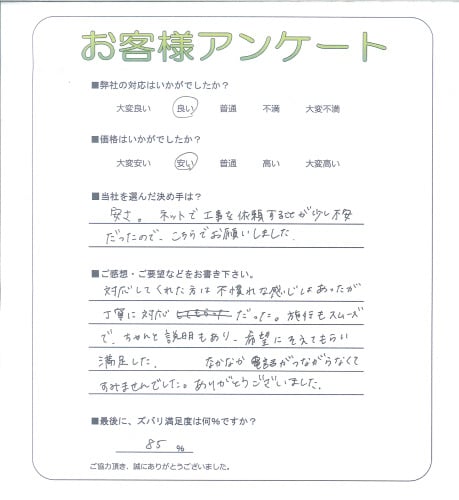 お客様アンケート
■弊社の対応はいかがでしたか?
大変良い 良い 普通 不満 大変不満
■価格はいかがでしたか?
大変安い 安い 普通 高い 大変高い
■当社を選んだ決め手は?
安さ。 ネットで工事を依頼することが少し不安
だったので、こちらでお願いしました。
■ご感想・ご要望などをお書き下さい。
対応してくれた方は不慣れな感じはあったが
丁寧に対応 だった。施行もスムーズ
で、ちゃんと説明もあり、希望にそえてもらい
満足した。 なかなか電話がつながらなくて
すみませんでした。ありがとうございました。
■最後に、ズバリ満足度は何%ですか?
85 %
ご協力頂き、誠にありがとうございました。